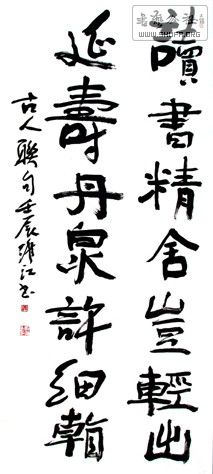 讀書精舍豈輕出
延壽丹泉許細斟
古人聯句壬辰維江書
WWW.SHUFA.ORG